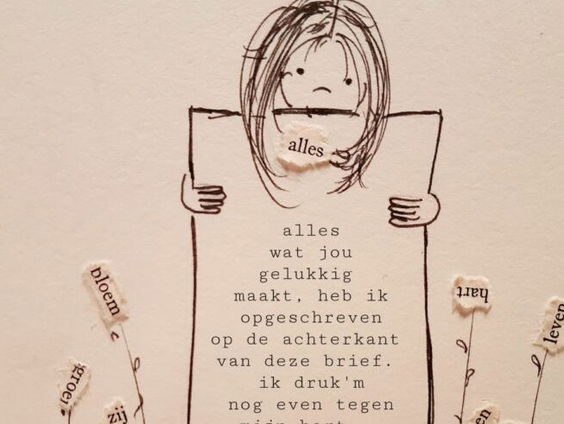 alles
alles
wat jou
gelukkig
maakt, heb ik
opgeschreven
op de achterkant
van deze brief.
ik druk'm
nog even tegen
mijn hart
bloem
groei
hart
leven